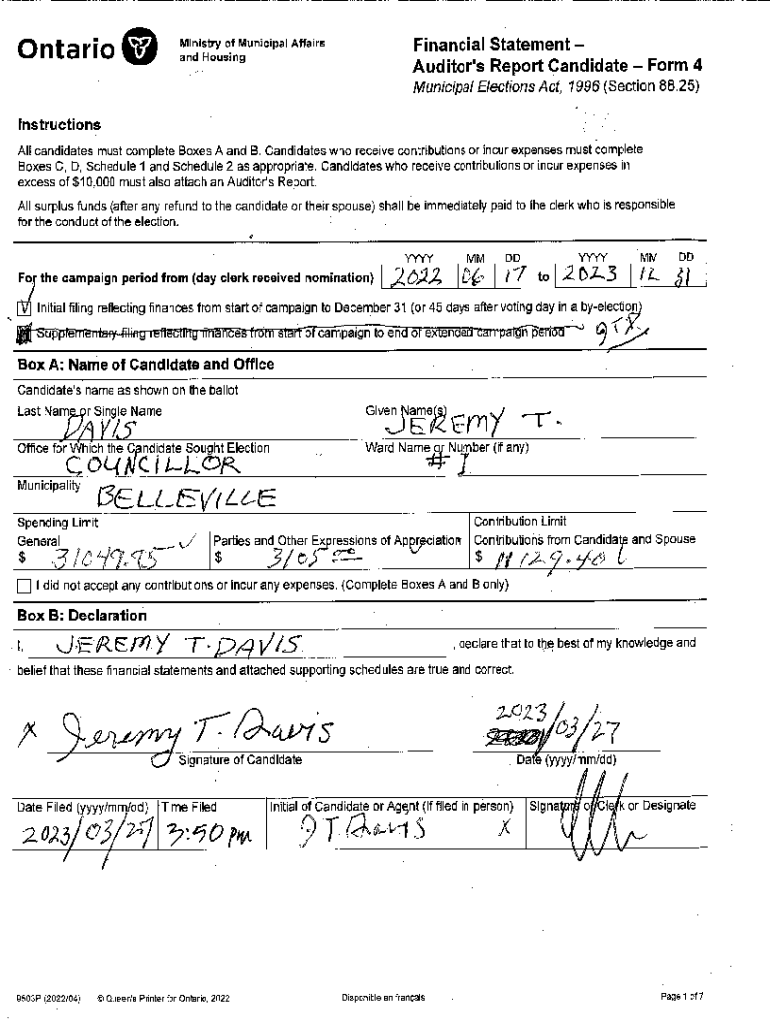 Ontario
Ministry of Municipal Affairs
and Housing
Financial Statement –
Auditor's Report Candidate – Form 4
Municipal Elections Act, 1996 (Section 88.25)
Instructions
All candidates must complete Boxes A and B. Candidates who receive contributions or incur expenses must complete
Boxes C, D, Schedule 1 and Schedule 2 as appropriate. Candidates who receive contributions or incur expenses in
excess of $10,000 must also attach an Auditor's Report.
All surplus funds (after any refund to the candidate or their spouse) shall be immediately paid to the clerk who is responsible
for the conduct of the election.
YYYY MM DD YYYY MM DD
For the campaign period from (day clerk received nomination) 2022 06 17 to 2023 12 31
Initial filing reflecting finances from start of campaign to December 31 (or 45 days after voting day in a by-election)
Supplementary filing reflecting finances from start of campaign to end of extended campaign period
Box A: Name of Candidate and Office
Candidate's name as shown on the ballot
Last Name or Single Name Given Name(s)
DAVIS JEREMY T.
Office for Which the Candidate Sought Election Ward Name or Number (if any)
COUNCILLOR # 1
Municipality
BELLEVILLE
Spending Limit Contribution Limit
General Parties and Other Expressions of Appreciation Contributions from Candidate and Spouse
$ 31049.95 $ 3105.00 $ 11129.40
I did not accept any contributions or incur any expenses. (Complete Boxes A and B only)
Box B: Declaration
I, JEREMY T. DAVIS , declare that to the best of my knowledge and
belief that these financial statements and attached supporting schedules are true and correct.
X Jeremy T. Davis 2023/03/27
Signature of Candidate Date (yyyy/mm/dd)
Date Filed (yyyy/mm/dd) Time Filed Initial of Candidate or Agent (if filed in person) Signature of Clerk or Designate
2023/03/27 3:50 pm J T. Davis X
9503P (2022/04) © Queen's Printer for Ontario, 2022 Disponible en français Page 1 of 7